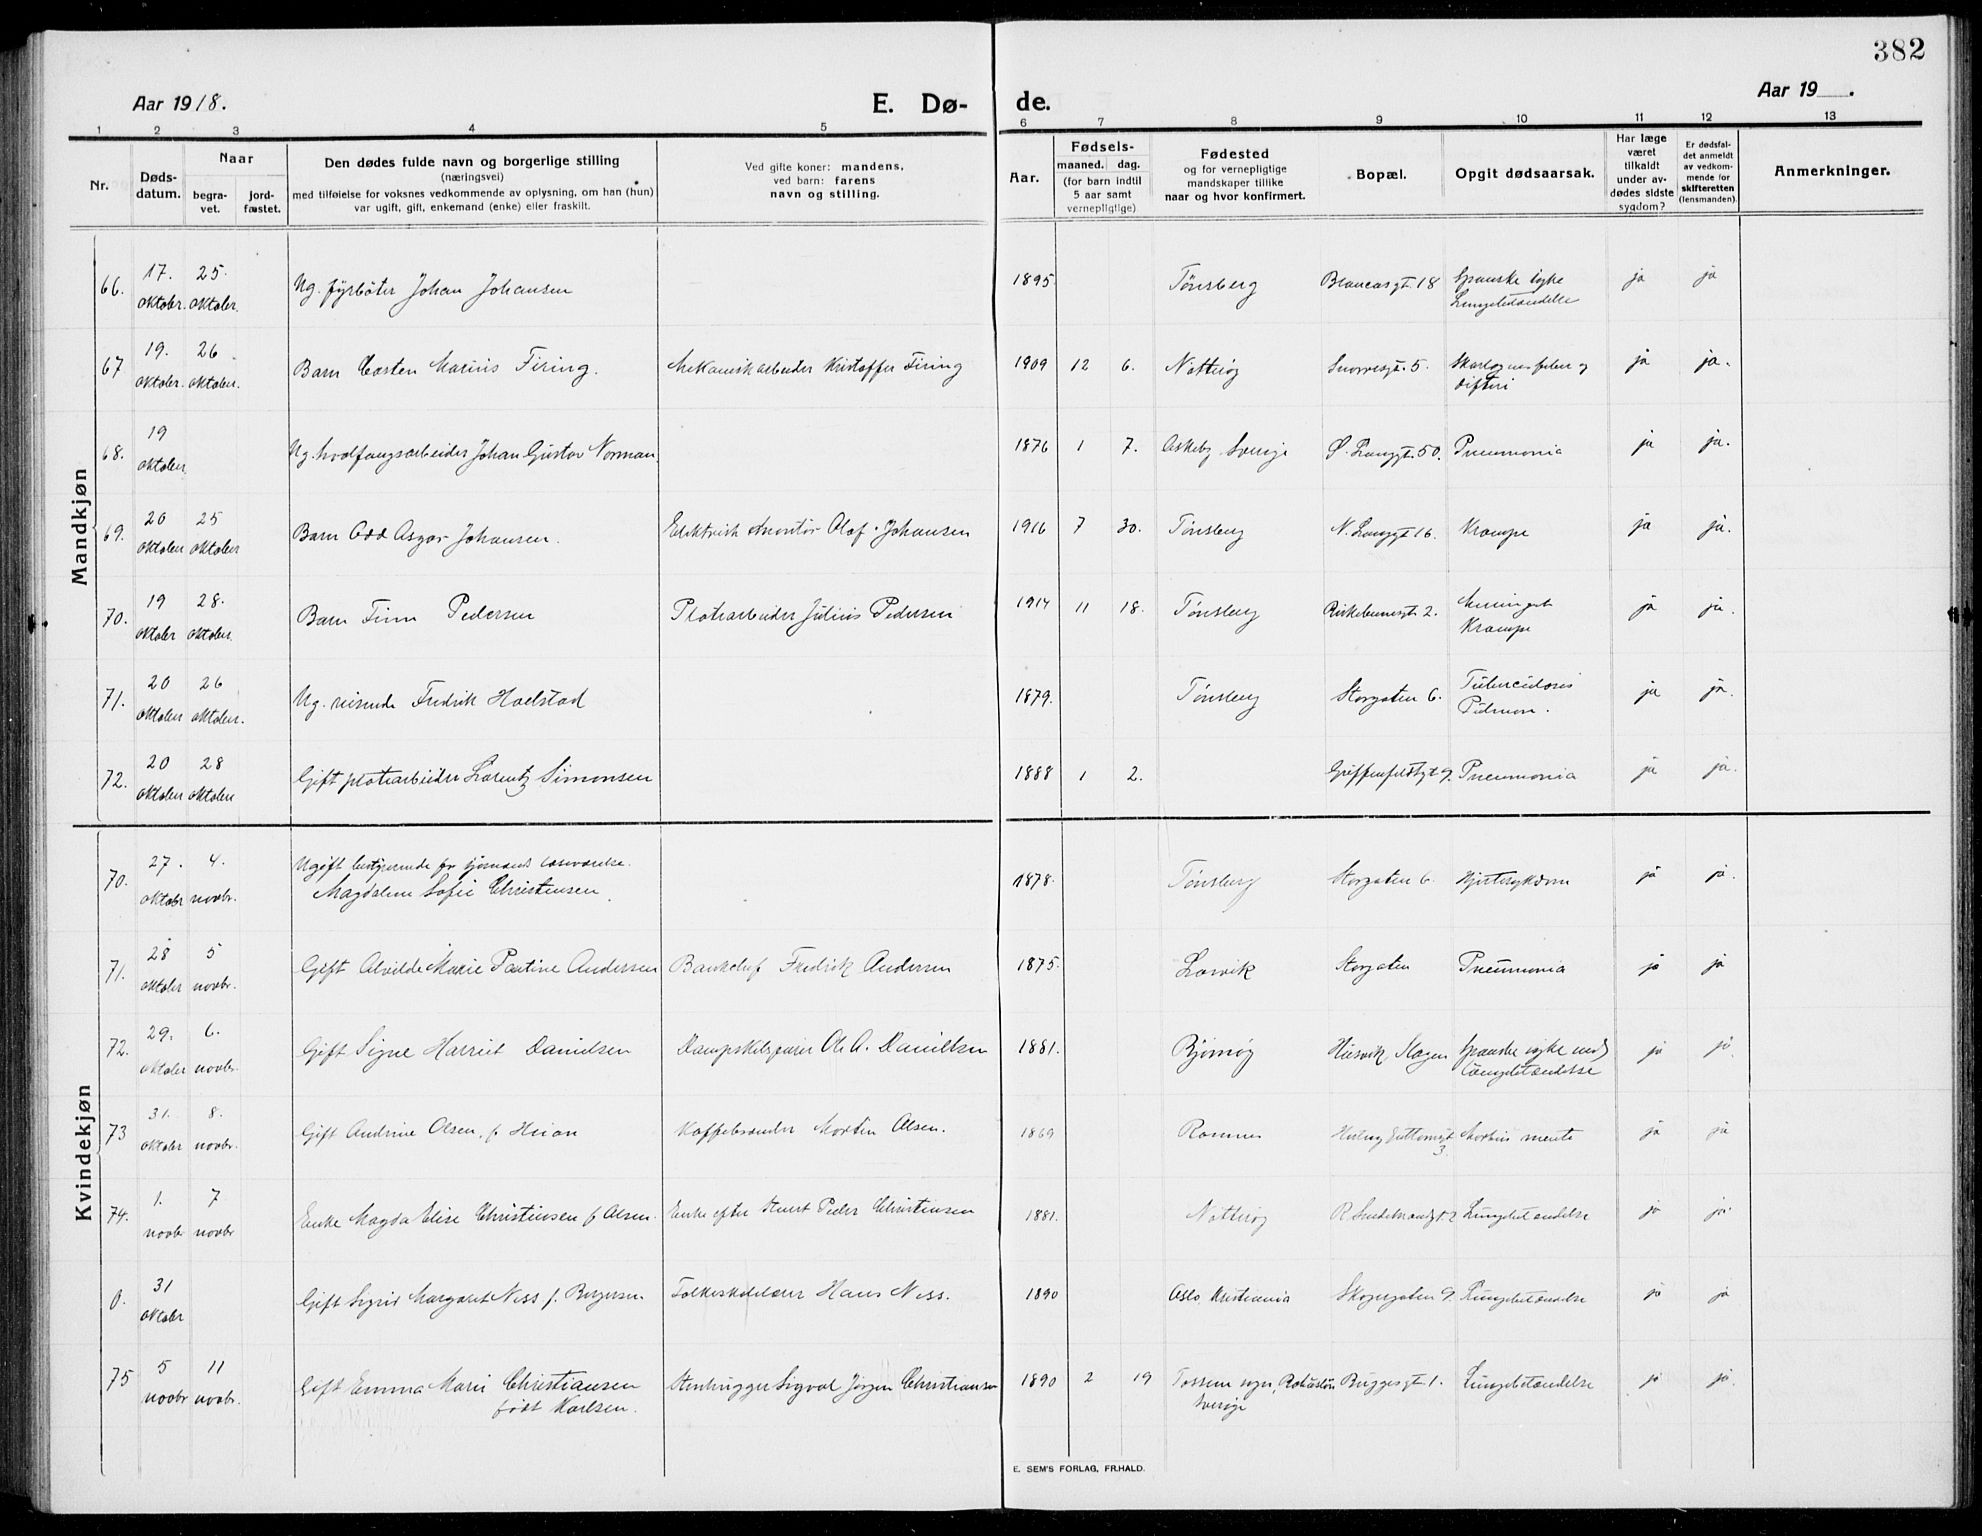 382
Aar 1918.
E. Dø-
de.
Aar 19 .
1 2 3 4 5 6 7 8 9 10 11 12 13
Nr.
Døds-
datum.
Naar
begra-
vet.
jord-
fæstet.
Den dødes fulde navn og borgerlige stilling
(næringsvei)
med tilføielse for voksnes vedkommende av oplysning, om han (hun)
var ugift, gift, enkemand (enke) eller fraskilt.
Ved gifte koner: mandens,
ved barn: farens
navn og stilling.
Aar.
Fødsels-
maaned. dag.
(for barn indtil
5 aar samt
vernepligtige)
Fødested
og for vernepligtige
mandskaper tillike
naar og hvor konfirmert.
Bopæl.
Opgit dødsaarsak.
Har læge
været
tilkaldt
under av-
dødes sidste
sygdom?
Er dødsfal-
det anmeldt
av vedkom-
mende for
skifteretten
(lensmanden).
Anmerkninger.
Mandkjøn
66. 17. oktober. 25. oktober. Ug. fyrbøter Johan Johansen 1895. Tønsberg gt. 18 Spanske syke Lungebetændelse ja ja
67 19. oktober. 26 oktober. Barn Carsten Marius Firing. Mekanikarbeider Kristoffer Firing 1909 12 6. Nøtterøy Snorresgt. 5. Skarlagensfeber og difteri ja ja.
68. 19 oktober Ug. hvalfangsarbeider Johan Gustav Norman. 1876 1 7. Askeby Sverige Ø. Langgt. 50. Pneumonia ja ja.
69. 20 oktober 25 oktober Barn Odd Asgar Johansen. Elektrisk Montør Olaf Johansen 1916 7 30. Tønsberg N. Langgt 16. Krampe ja ja.
70. 19 oktober 28. oktober. Barn Finn Pedersen Platearbeider Julius Pedersen 1914 11 18. Tønsberg Birkebeinersgt 2. Meningit Krampe ja ja.
71. 20 oktober 26 oktober. Ug. reisende Fredrik Hoelstad 1879. Tønsberg Storgaten 6. Tuberculosis Pulmon. ja ja.
72. 20 oktober 28 oktober Gift platearbeider Lorentz Simonsen 1888 1 2. Griffenfeldtsgt 9. Pneumonia ja ja.
Kvindekjøn
70. 27. oktobr 4. novbr. Ugift bestyrende for sjømænds læseværelse. Magdalene Sofie Christensen. 1878. Tønsberg Storgaten 6. Hjertesykdom ja ja.
71. 28 oktober 5 novbr. Gift Alvilde Marie Pauline Andersen Bankchef Fredrik Andersen 1875. Larvik Storgaten Pneumonia ja ja
72. 29. oktober 6. novbr. Gift Signe Harriet Danielsen Dampskibsfører Ole A. Danielsen 1881. Bjørnøy Husvik, Slagen Spanske syke med Lungebetændelse ja ja.
73 31. oktober 8. novbr. Gift Andrine Olsen, f. Kaffebrænder Morten Olsen. 1869 Ramnes Hertug Guttormsgt 3. Morbus menti ja ja
74. 1. novbr 7 novbr Enke Magda Elise Christensen f. Olsen. Enke efter Stuert Peder Christensen 1881. Nøtterøy gt. 2 Lungebetændelse ja ja.
0. 31 oktober Gift Sigrid Margaret Ness f. Borgersen Folkeskolelærer Hans Ness. 1890 Oslo, Kristiania Skogegaten 9. Lungebetændelse ja ja
75 5 novbr 11 novbr. Gift Emma Marie Christiansen født Karlsen. Stenhugger Sigval Jørgen Christiansen 1890 2 19 Tossene sogn, Sverige Buggesgt 1. Lungebetændelse ja ja.
E. SEM'S FORLAG, FR.HALD.